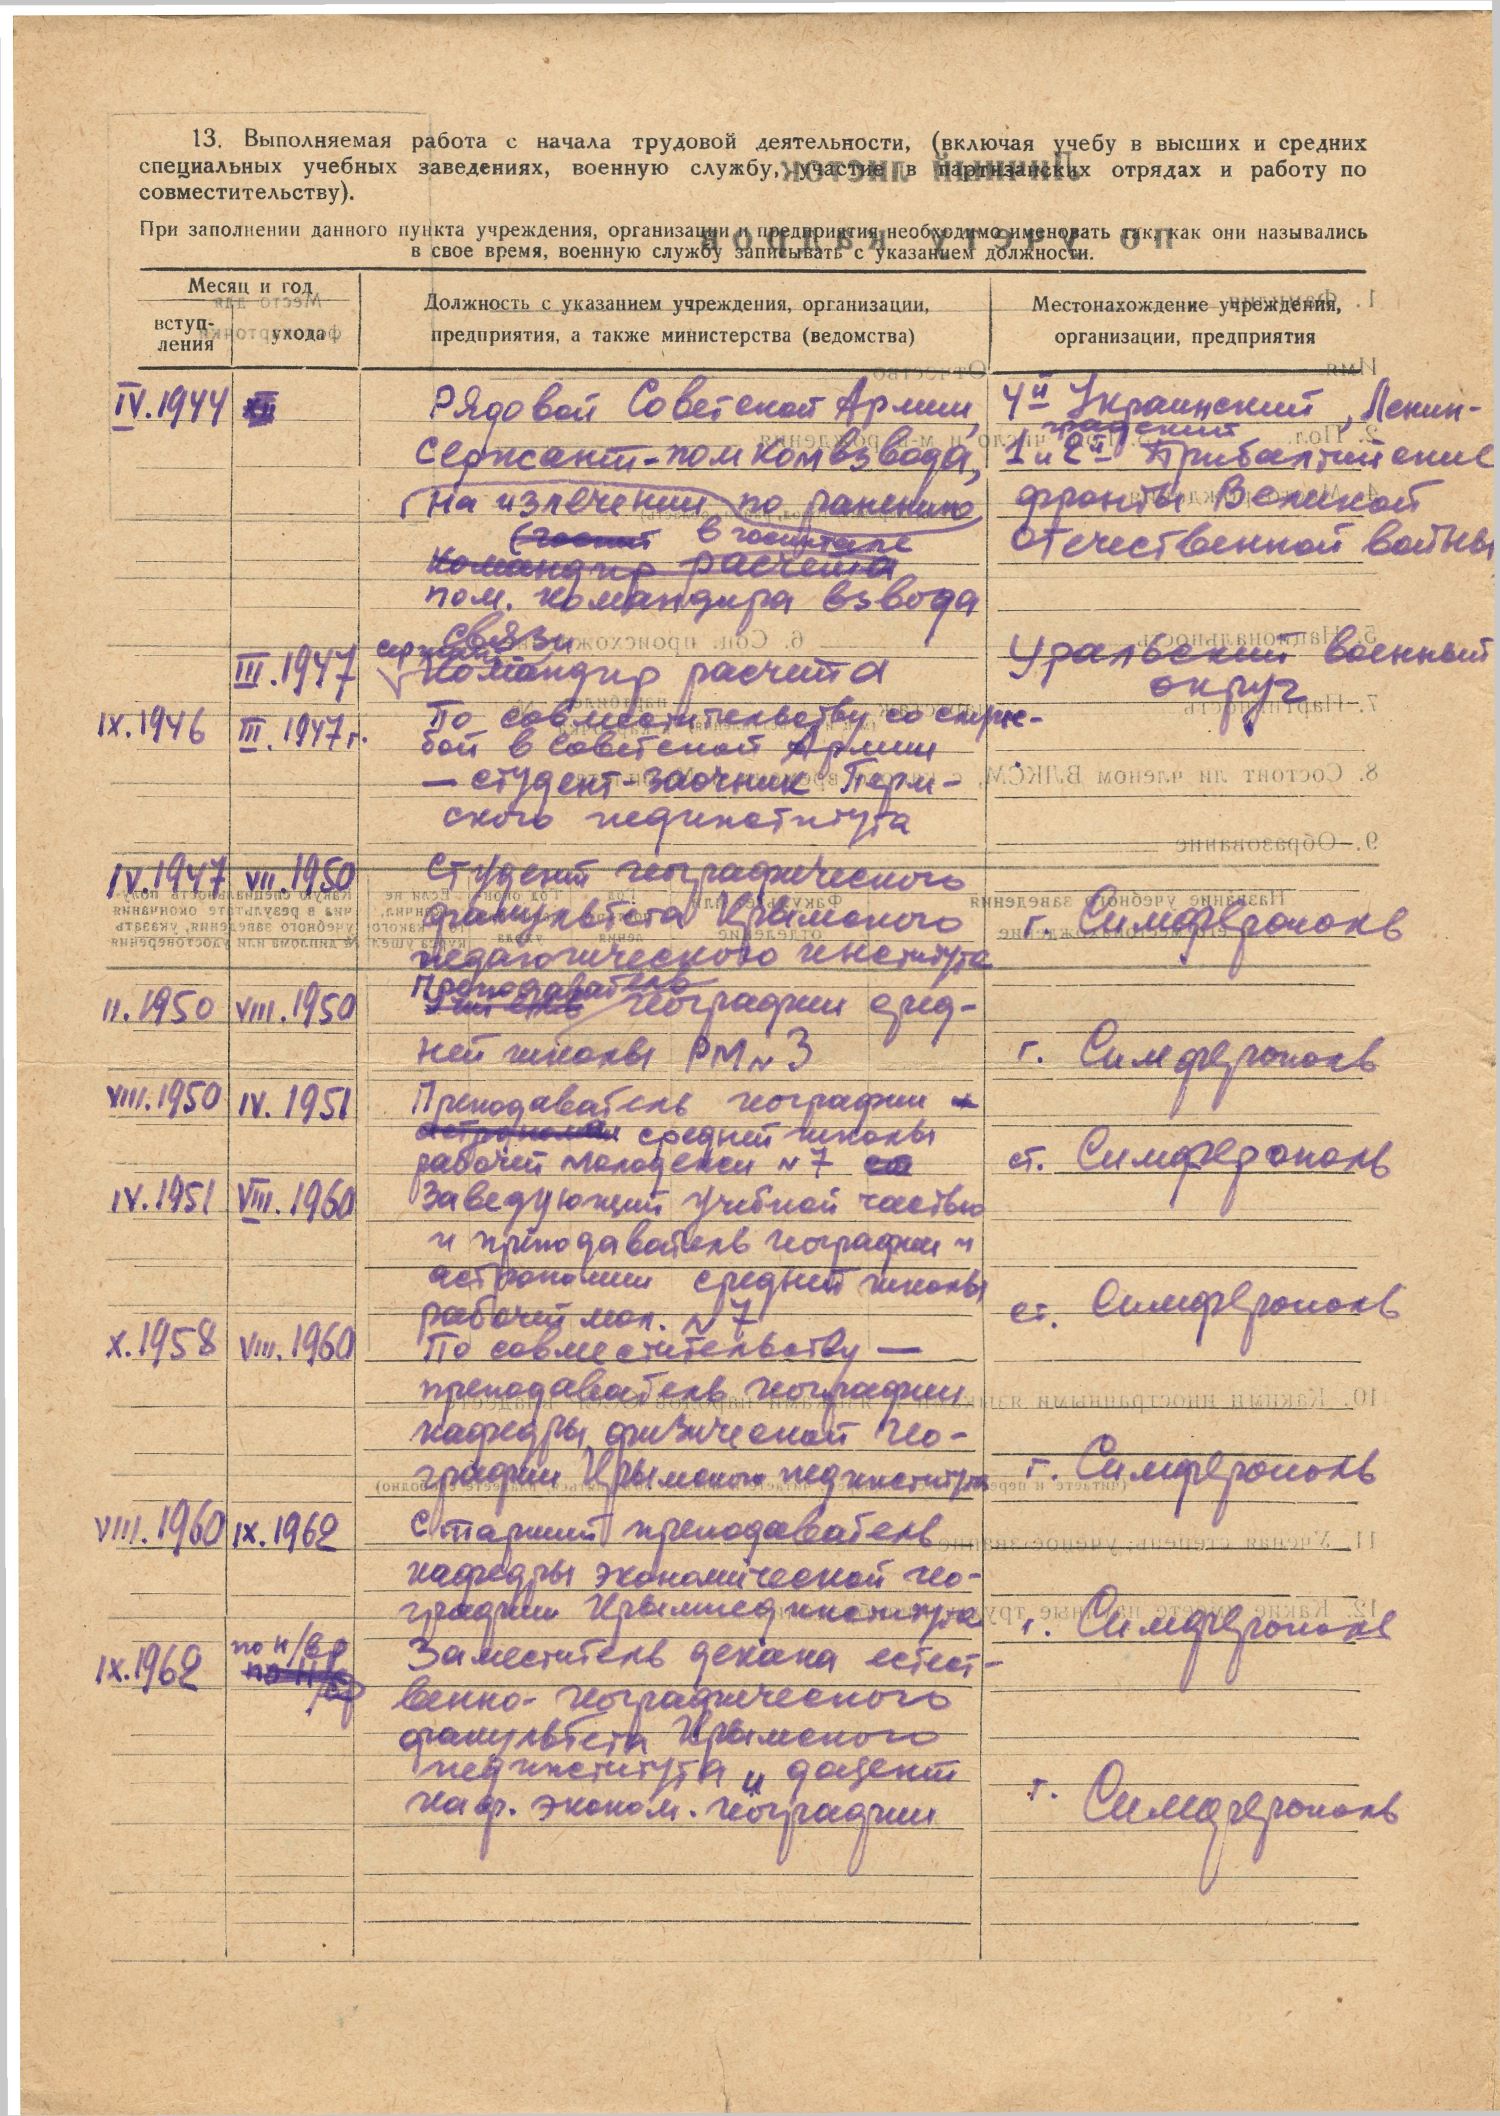 13. Выполняемая работа с начала трудовой деятельности, (включая учебу в высших и средних
специальных учебных заведениях, военную службу, участие в партизанских отрядах и работу по
совместительству).
При заполнении данного пункта учреждения, организации и предприятия необходимо именовать так, как они назывались
в свое время, военную службу записывать с указанием должности.
Месяц и год
вступ-
ления
ухода
Должность с указанием учреждения, организации,
предприятия, а также министерства (ведомства)
Местонахождение учреждения,
организации, предприятия
IV.1944 XII Рядовой Советской Армии, 4й Украинский, Ленин-
градский
Сержант-помкомвзвода, 1 и 2й Прибалтийские
на излечении по ранению фронты Великой
в госпитале Отечественной войны
командир расчета
пом. командира взвода
связи
сержант
III.1947 командир расчета Уральский военный
округ
IX.1946 III.1947г. По совместительству со служ-
бой в Советской Армии
— студент-заочник Перм-
ского пединститута
IV.1947 VII.1950 Студент географического
факультета Крымского г. Симферополь
педагогического института
Преподаватель
II.1950 VIII.1950 географии сред-
ней школы РМ №3 г. Симферополь
VIII.1950 IV.1951 Преподаватель географии и
астрономии средней школы
рабочей молодежи №7 ст. Симферополь
IV.1951 VIII.1960 Заведующий учебной частью
и преподаватель географии и
астрономии средней школы
рабочей мол. №7 ст. Симферополь
X.1958 VIII.1960 По совместительству —
преподаватель географии
кафедры физической гео-
графии Крымского пединститута г. Симферополь
VIII.1960 IX.1962 Старший преподаватель
кафедры экономической гео-
графии Крымпединститута г. Симферополь
IX.1962 по н/вр Заместитель декана естест-
по н/вр
венно-географического
факультета Крымского
пединститута и доцент
каф. эконом. географии г. Симферополь